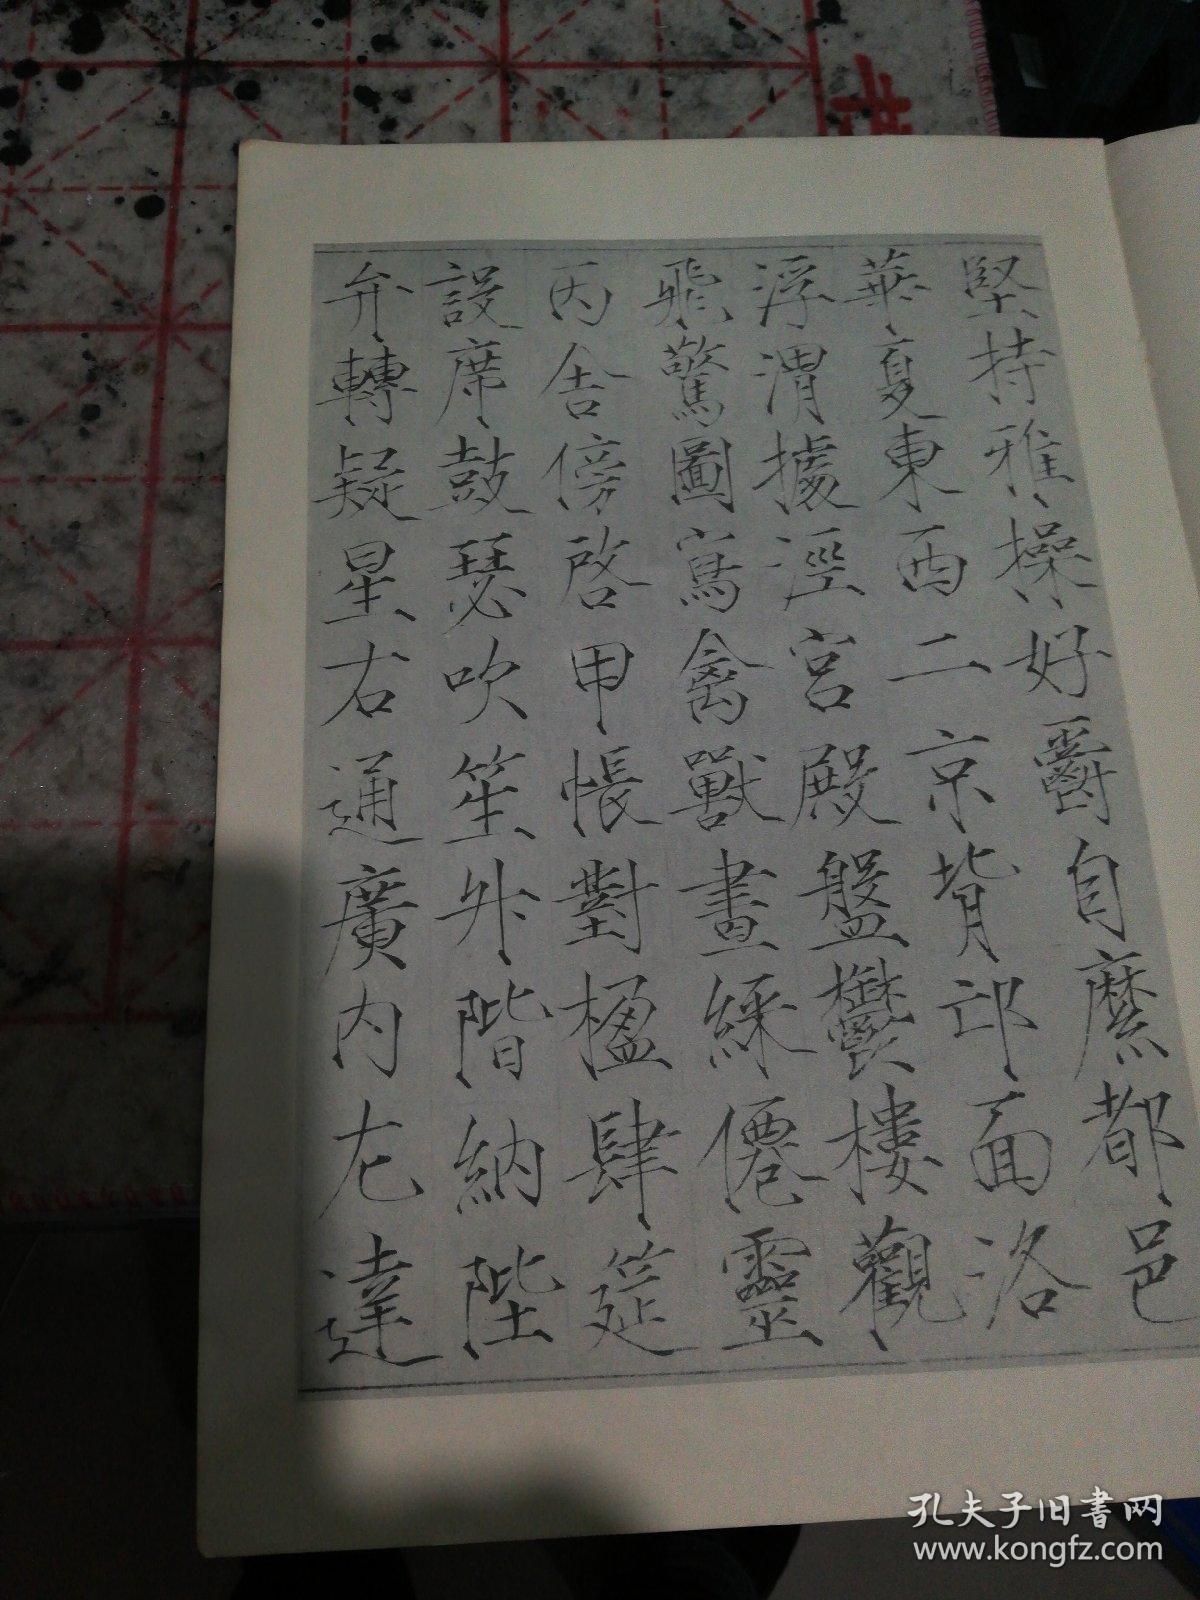 堅持雅操好爵自縻都邑
華夏東西二京背邙面洛
浮渭據涇宮殿盤鬱樓觀
飛驚圖寫禽獸畫綵僊靈
丙舍傍啓甲帳對楹肆筵
設席鼓瑟吹笙升階納陛
弁轉疑星右通廣內左達
孔夫子旧书网
www.kongfz.com